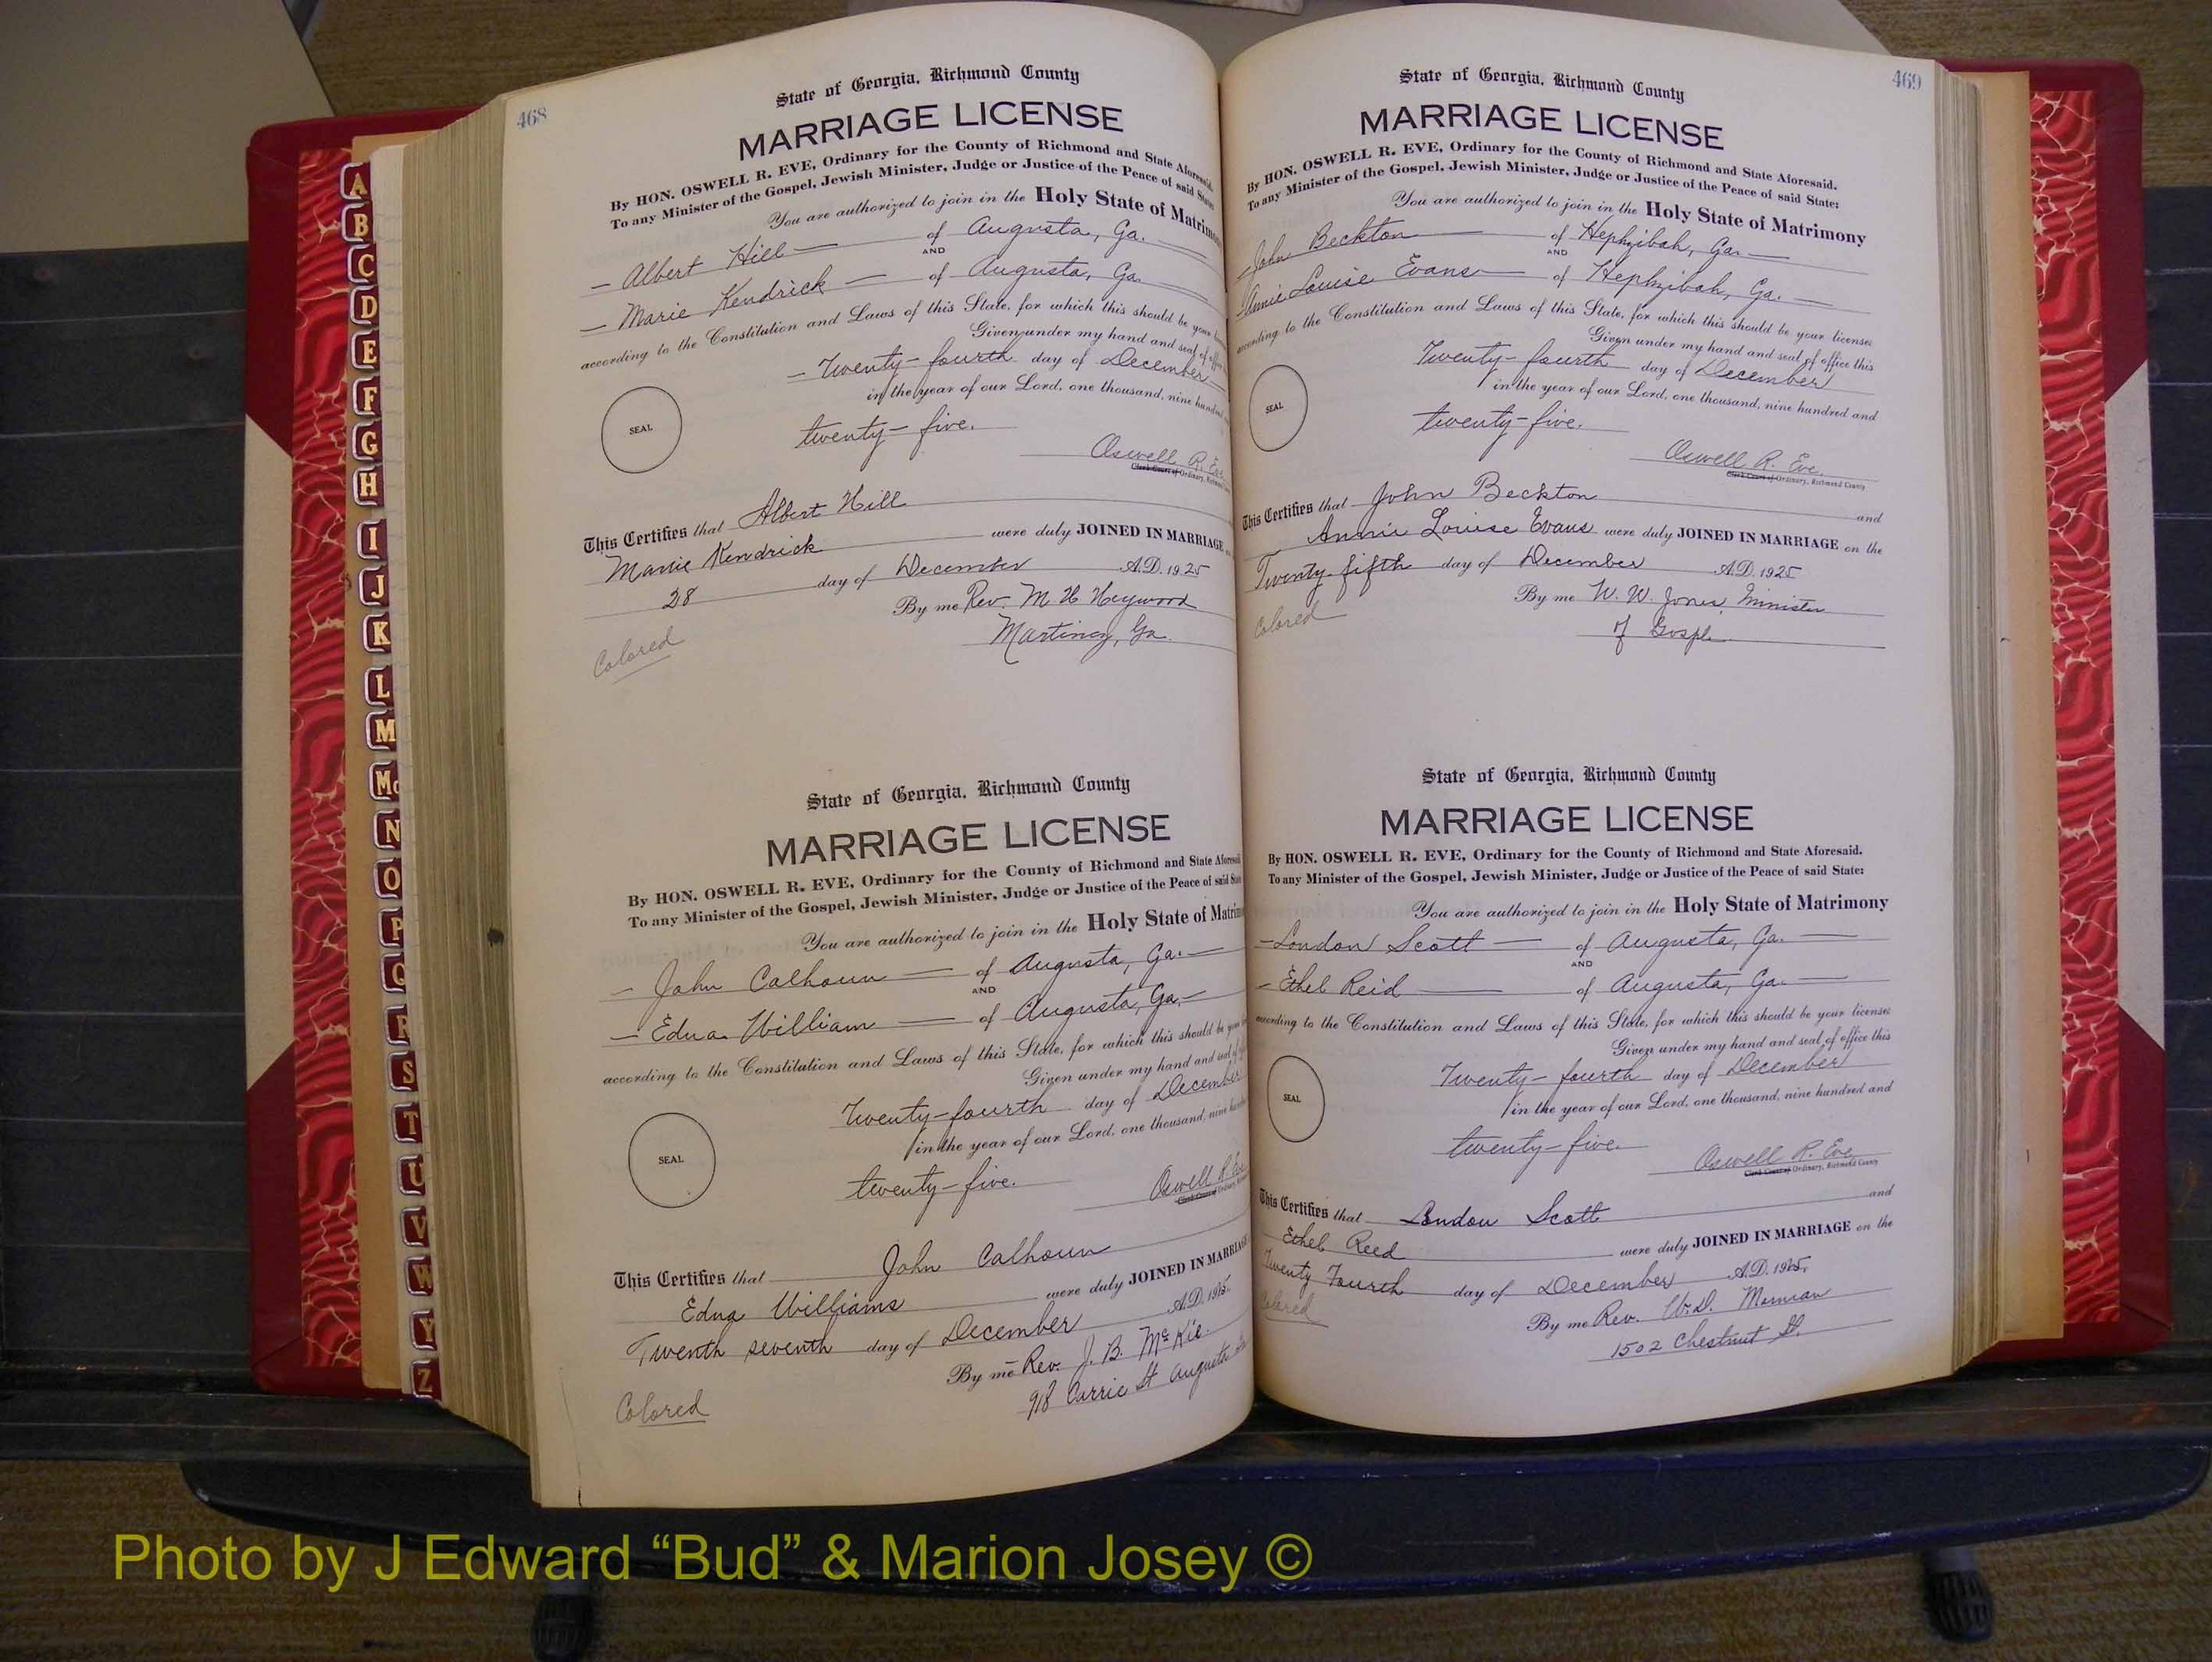 468
State of Georgia, Richmond County
MARRIAGE LICENSE
By HON. OSWELL R. EVE, Ordinary for the County of Richmond and State Aforesaid.
To any Minister of the Gospel, Jewish Minister, Judge or Justice of the Peace of said State
You are authorized to join in the Holy State of Matrimony
Albert Hill of Augusta, Ga.
AND
Marie Kendrick of Augusta, Ga.
according to the Constitution and Laws of this State, for which this should be your
Given under my hand and seal of office
Twenty-fourth day of December
in the year of our Lord, one thousand, nine hundred
twenty-five.
SEAL
Oswell R. Eve
Clerk Court of Ordinary, Richmond
This Certifies that Albert Hill
Marie Kendrick were duly JOINED IN MARRIAGE
28 day of December A.D. 1925
By me Rev. M H Heywood
Martinez, Ga.
Colored
State of Georgia, Richmond County
MARRIAGE LICENSE
By HON. OSWELL R. EVE, Ordinary for the County of Richmond and State Aforesaid
To any Minister of the Gospel, Jewish Minister, Judge or Justice of the Peace of said State
You are authorized to join in the Holy State of Matrim
John Calhoun of Augusta, Ga.
AND
Edna William of Augusta, Ga,
according to the Constitution and Laws of this State, for which this should be your
Given under my hand and seal of
Twenty-fourth day of December
in the year of our Lord, one thousand, nine hundred
twenty-five.
SEAL
Oswell R. Eve
Clerk Court of Ordinary,
This Certifies that John Calhoun
Edna Williams were duly JOINED IN MARRIAGE
Twenth seventh day of December A.D. 1925.
By me Rev. J. B. McKie.
918 Carrie St Augusta Ga
Colored
469
State of Georgia, Richmond County
MARRIAGE LICENSE
By HON. OSWELL R. EVE, Ordinary for the County of Richmond and State Aforesaid.
To any Minister of the Gospel, Jewish Minister, Judge or Justice of the Peace of said State:
You are authorized to join in the Holy State of Matrimony
John Beckton of Hephzibah, Ga.
AND
Annie Louise Evans of Hephzibah, Ga.
according to the Constitution and Laws of this State, for which this should be your license
Given under my hand and seal of office this
Twenty-fourth day of December
in the year of our Lord, one thousand, nine hundred and
twenty-five.
SEAL
Oswell R. Eve.
Clerk Court of Ordinary, Richmond County
This Certifies that John Beckton and
Annie Louise Evans were duly JOINED IN MARRIAGE on the
Twenty fifth day of December A.D. 1925
By me W. W. Jones, Minister
of Gospl
Colored
State of Georgia, Richmond County
MARRIAGE LICENSE
By HON. OSWELL R. EVE, Ordinary for the County of Richmond and State Aforesaid.
To any Minister of the Gospel, Jewish Minister, Judge or Justice of the Peace of said State:
You are authorized to join in the Holy State of Matrimony
London Scott of Augusta, Ga.
AND
Ethel Reid of Augusta, Ga.
according to the Constitution and Laws of this State, for which this should be your license
Given under my hand and seal of office this
Twenty-fourth day of December
in the year of our Lord, one thousand, nine hundred and
twenty-five.
SEAL
Oswell R. Eve
Clerk Court of Ordinary, Richmond County
This Certifies that London Scott and
Ethel Reed were duly JOINED IN MARRIAGE on the
Twenty Fourth day of December A.D. 1925.
By me Rev. W.D. Morman
1502 Chestnut St.
Colored
A
B
C
D
E
F
G
H
I
J
K
L
M
Mc
N
O
P
Q
R
S
T
U
V
W
Y
Z
Photo by J Edward “Bud” & Marion Josey ©